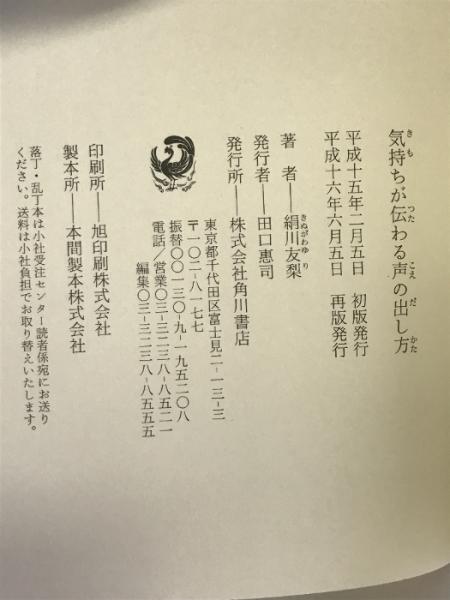 気持ちが伝わる声の出し方
平成十五年二月五日　初版発行
平成十六年六月五日　再版発行
著　者――絹川友梨
発行者――田口惠司
発行所――株式会社角川書店
東京都千代田区富士見二-一三-三
〒一〇二-八一七七
振替〇〇一三〇-九-一九五二〇八
電話／営業〇三-三二三八-八五二一
編集〇三-三二三八-八五五五
印刷所――旭印刷株式会社
製本所――本間製本株式会社
落丁・乱丁本は小社受注センター読者係宛にお送り
ください。送料は小社負担でお取り替えいたします。